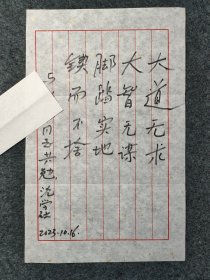 大道无求
大智无谋
脚踏实地
锲而不捨
与
同志共勉
2023.10.16.